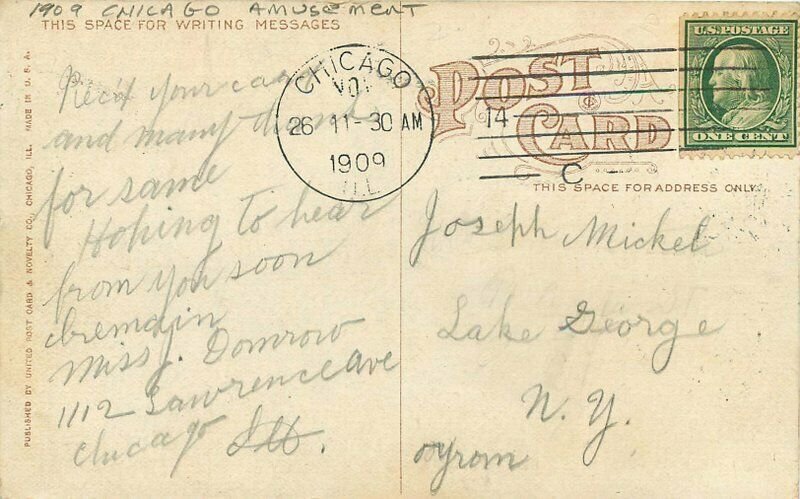 1909 CHICAGO AMUSEMENT
THIS SPACE FOR WRITING MESSAGES
Rec'd your card
and many thanks
for same
Hoping to hear
from you soon
I remain
Miss J. Domrow
1112 Lawrence Ave
Chicago Ill.
PUBLISHED BY UNITED POST CARD & NOVELTY CO., CHICAGO, ILL. MADE IN U. S. A.
CHICAGO
26 11-30 AM
1909
ILL
14
C
POST
CARD
U.S. POSTAGE
ONE CENT
THIS SPACE FOR ADDRESS ONLY
Joseph Mickel
Lake George
N. Y.